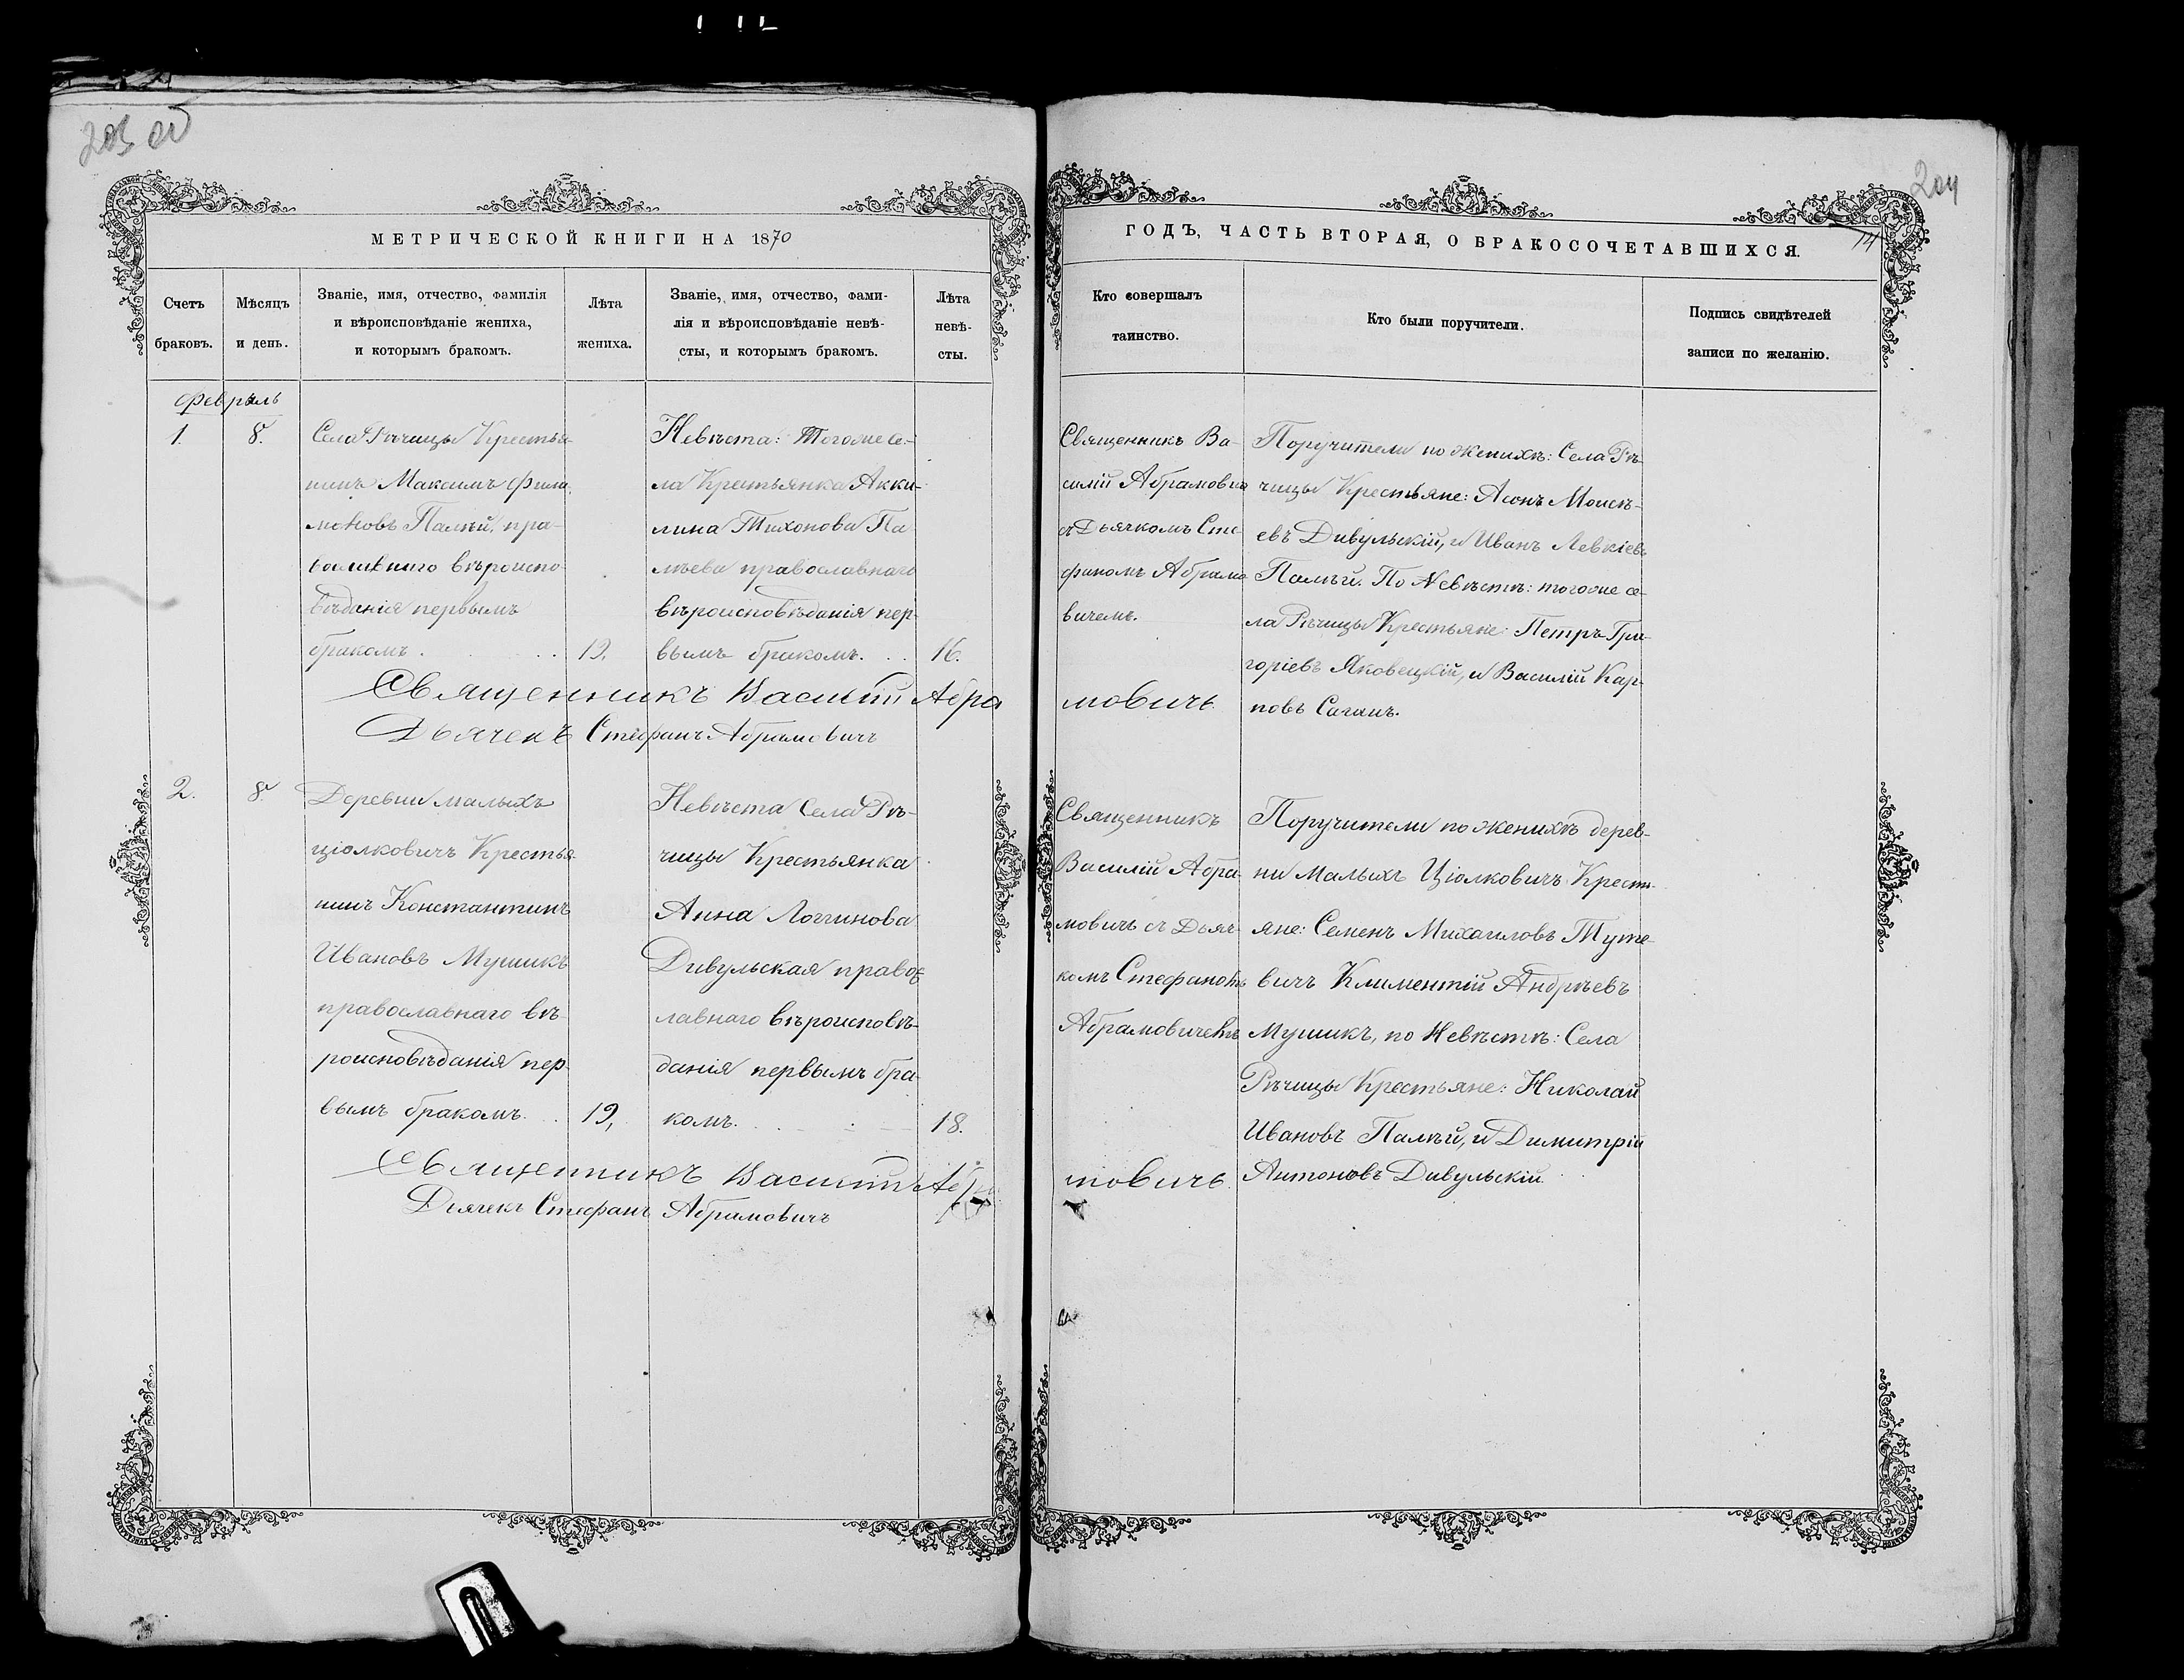 203 об
МЕТРИЧЕСКОЙ КНИГИ НА 1870
Счетъ браковъ.
Мѣсяцъ и день.
Званіе, имя, отчество, фамилія
и вѣроисповѣданіе жениха,
и которымъ бракомъ.
Лѣта
жениха.
Званіе, имя, отчество, фами-
лія и вѣроисповѣданіе невѣ-
сты, и которымъ бракомъ.
Лѣта
невѣ-
сты.
Февраль
1.
8.
Села Рѣчицы Крестья-
нинъ Максимъ Фили-
моновъ Палѣй, пра-
вославнаго вѣроиспо-
вѣданія первымъ
бракомъ.
19.
Невѣста: Тогоже се-
ла Крестьянка Акки-
лина Тихонова Па
лѣева православнаго
вѣроисповѣданія пер-
вымъ бракомъ.
16.
Священникъ Василій Абра
Дьячекъ Стефанъ Абрамовичъ
2.
8.
Деревни малыхъ
ціолковичъ Крестья-
нинъ Константинъ
Ивановъ Мушикъ
православнаго вѣ-
роисповѣданія пер-
вымъ бракомъ.
19,
Невѣста Села Рѣ-
чицы Крестьянка
Анна Логгинова
Дивульская правос
лавнаго вѣроисповѣ-
данія первымъ бра-
комъ.
18.
Священникъ Василій Абра
Дьячекъ Стефанъ Абрамовичъ
204
14
ГОДЪ, ЧАСТЬ ВТОРАЯ, О БРАКОСОЧЕТАВШИХСЯ.
Кто совершалъ
таинство.
Кто были поручители.
Подпись свидѣтелей
записи по желанію.
Священникъ Ва-
силій Абрамовичъ
съ Дьячкомъ Сте
фаномъ Абрамо
вичемъ.
мовичъ
Поручители по женихѣ: Села Рѣ-
чицы Крестьяне: Асонъ Моисѣ-
евъ Дивульскій, и Иванъ Левкіевъ
Палѣй. По Невѣстѣ: тогоже се-
ла Рѣчицы Крестьяне: Петръ Гри-
горіевъ Яковецкій, и Василій Кар-
повъ Саганъ.
Священникъ
Василій Абра-
мовичъ съ Дьяч-
комъ Стефаномъ
Абрамовичемъ
мовичъ
Поручители по женихѣ дерев-
ни Малыхъ Ціолковичъ Крестьи-
яне: Семенъ Михаиловъ Туте-
вичъ Климентій Андрѣевъ
Мушикъ, по Невѣстѣ: Села
Рѣчицы Крестьяне: Николай
Ивановъ Палѣй, и Димитрій
Антоновъ Дивульскій.